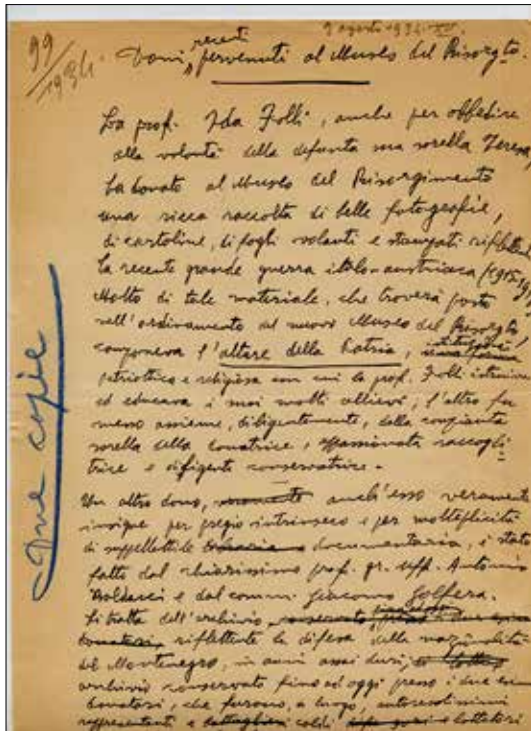 99
1934.
9 agosto 1934
recenti
Doni pervenuti al Museo del Risorgto.
La prof. Ida Folli, anche per obbedire
alla volontà della defunta sua sorella Teresa,
ha donato al Museo del Risorgimento
una ricca raccolta di belle fotografie,
di cartoline, di fogli volanti e stampati riflettenti
la recente grande guerra italo-austriaca
Molto di tale materiale, che troverà posto
nell'ordinamento del nuovo Museo del Risorgto,
componeva l'altare della Patria, istituzione
patriottica e religiosa con cui la prof. Folli istruiva
ed educava i suoi molti allievi, l'altro fu
messo assieme, diligentemente, dalla compianta
sorella della donatrice, appassionata raccogli
trice e diligente conservatrice.
Un altro dono, anch'esso veramente
insigne per pregio intrinseco e per molteplicità
di suppellettile documentaria, è stato
fatto dal chiarissimo prof. gr. uff. Antonio
Baldacci e dal comm. Giacomo Golfera.
Si tratta dell'archivio,
riflettente la difesa della nazionalità
del Montenegro, in anni assai duri,
archivio conservato fino ad oggi presso i due
donatori, che furono, a lungo, autorevolissimi
rappresentanti e caldi lottatori
Due copie